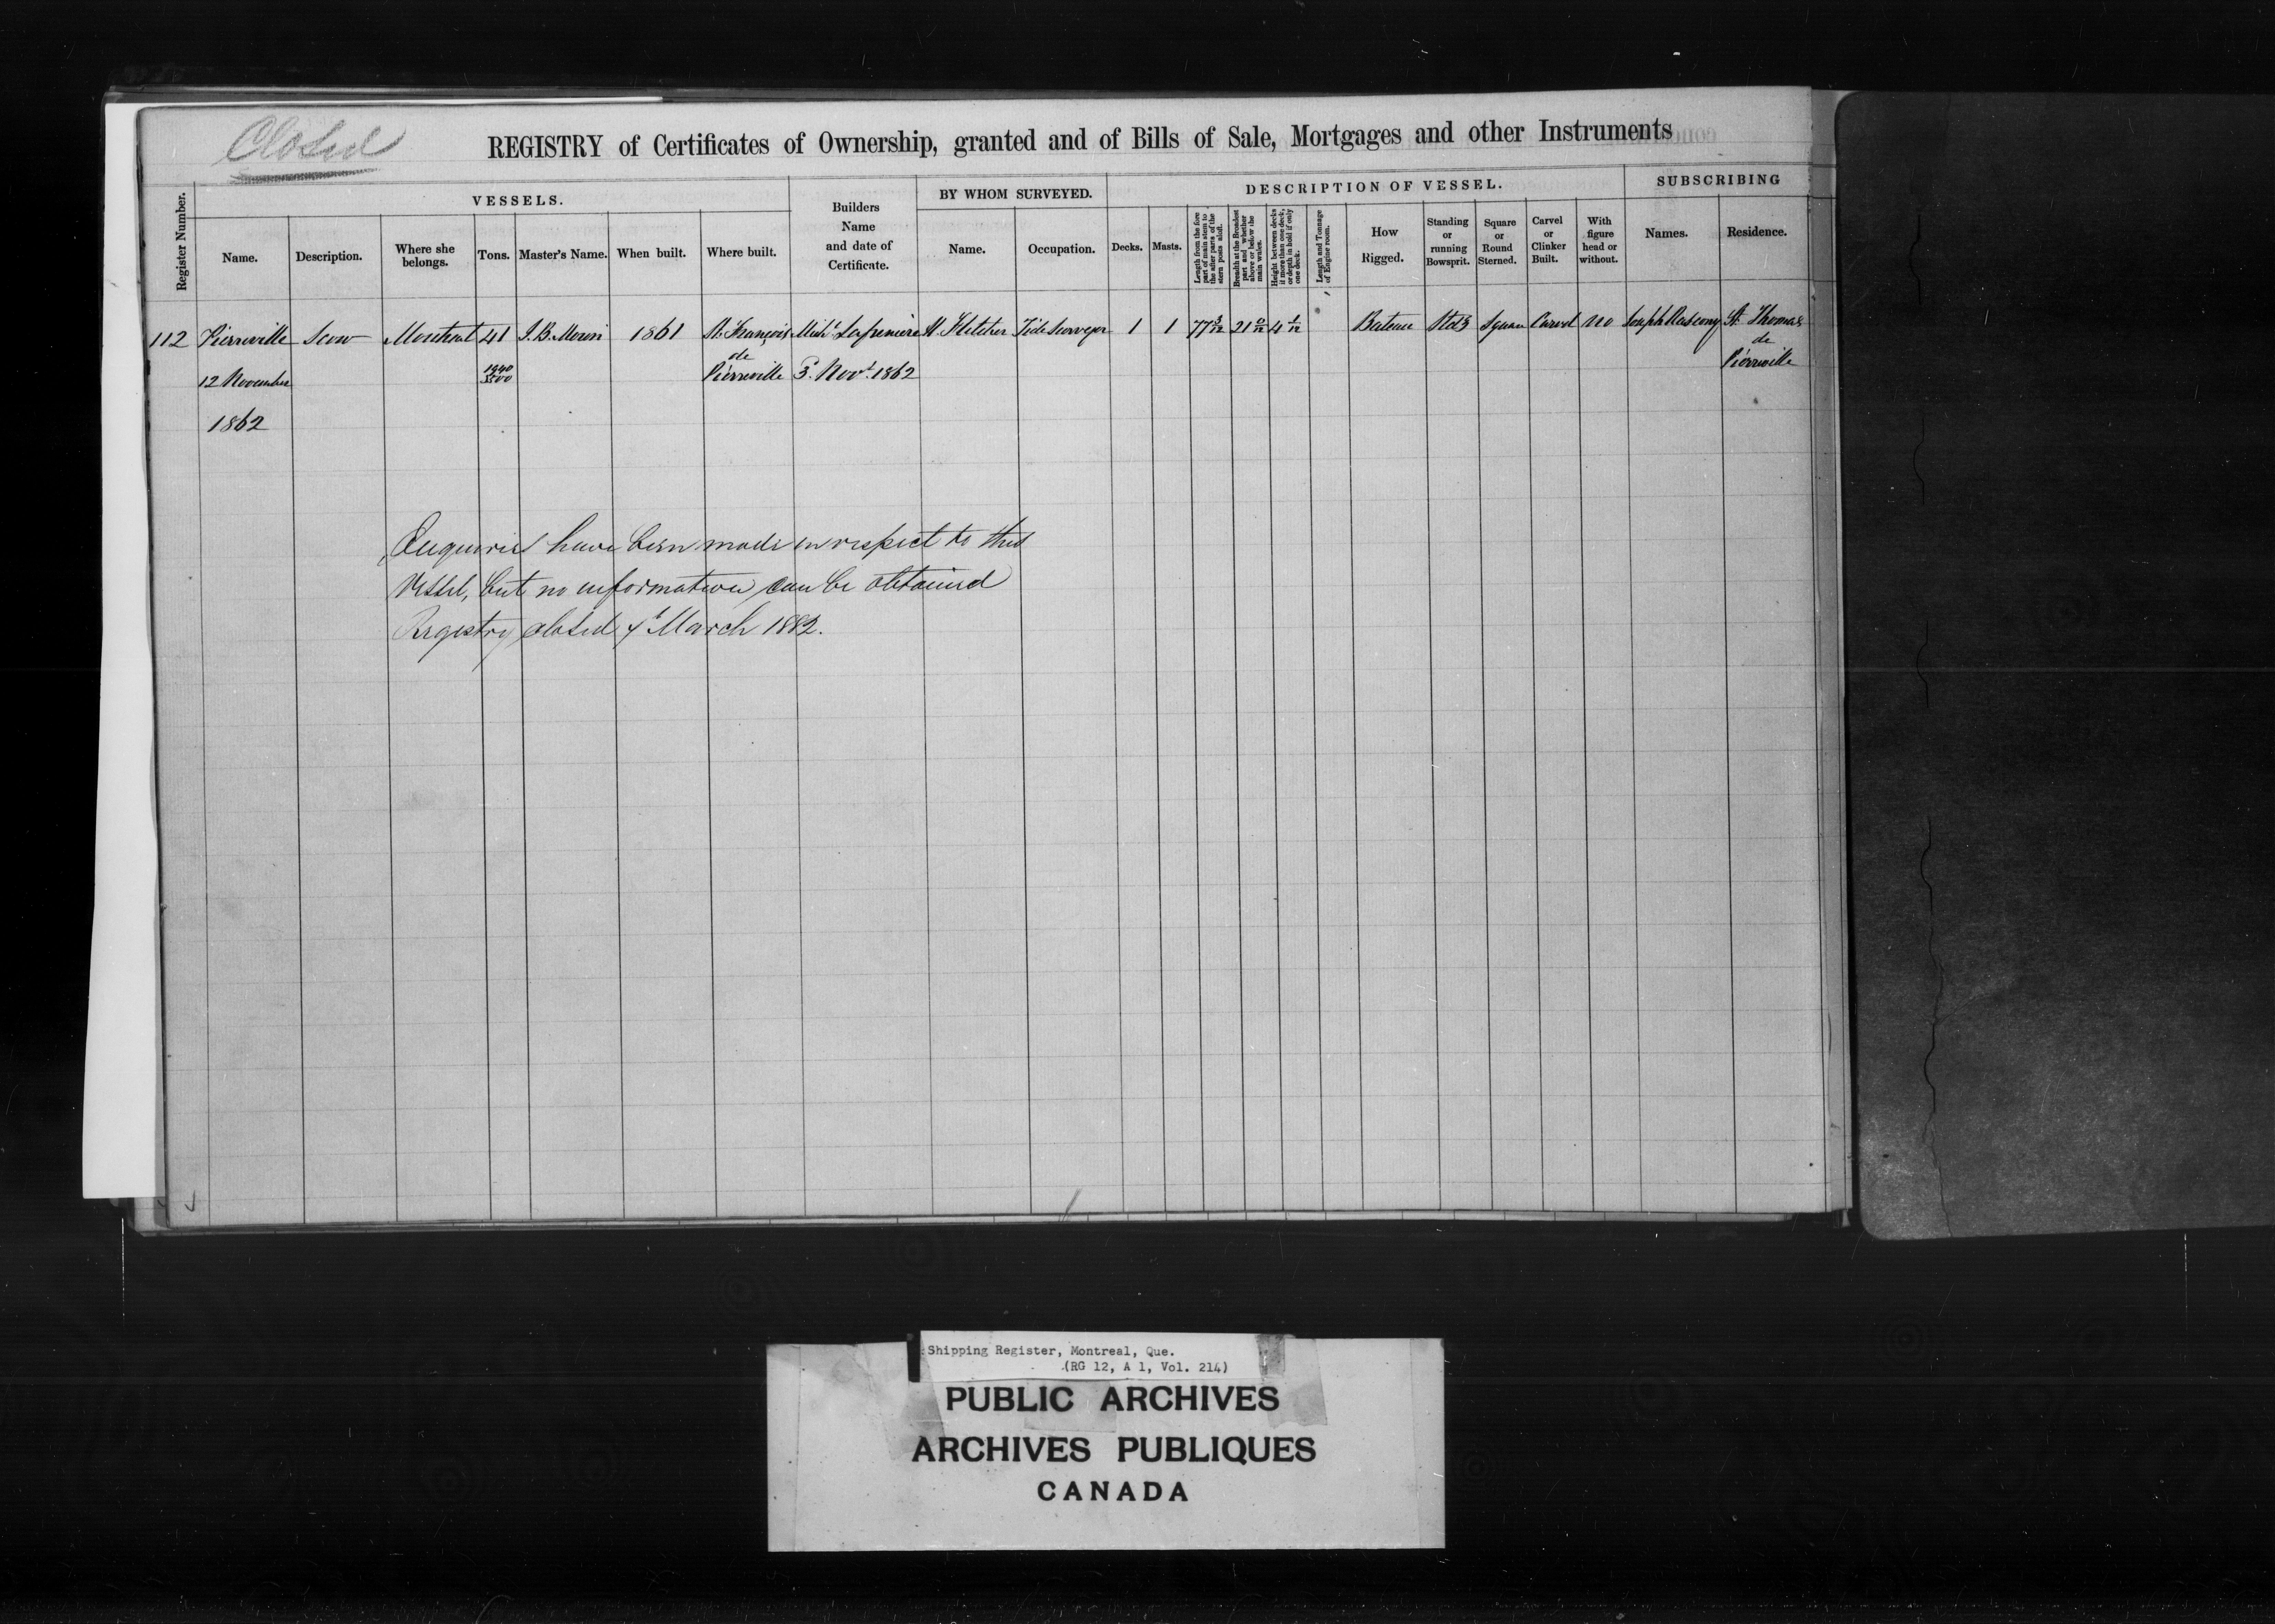 Closed
REGISTRY of Certificates of Ownership, granted and of Bills of Sale, Mortgages and other Instruments
Register Number.
VESSELS.
Name.
Description.
Where she belongs.
Tons.
Master's Name.
When built.
Where built.
Builders Name and date of Certificate.
BY WHOM SURVEYED.
Name.
Occupation.
DESCRIPTION OF VESSEL.
Decks.
Masts.
Length from the fore part of main stem to the after parts of the stern posts aloft.
Breadth at the Broadest part and whether above or below the main wales.
Height between decks if more than one deck, or depth in hold if only one deck.
Length and Tonnage of Engine room.
How Rigged.
Standing or running Bowsprit.
Square or Round Sterned.
Carvel or Clinker Built.
With figure head or without.
SUBSCRIBING
Names.
Residence.
112 Pierreville Scow Montreal 41 J. B. Morin 1861 St. François Mich. Lapreniere Fletcher Tide Surveyor 1 1 77 3/12 21 0/12 4 1/12 Bateau Stdg Square Carvel no Joseph St. Thomas
de de
12 November Pierreville 3 Novr. 1862 Pierreville
1862
Enquiries have been made in respect to this
Vessel, but no information can be obtained
Registry closed March 1882.
Shipping Register, Montreal, Que.
(RG 12, A 1, Vol. 214)
PUBLIC ARCHIVES
ARCHIVES PUBLIQUES
CANADA